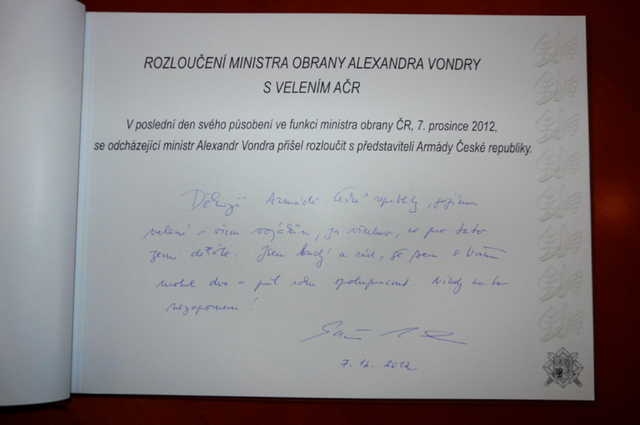 ROZLOUČENÍ MINISTRA OBRANY ALEXANDRA VONDRY
S VELENÍM AČR
V poslední den svého působení ve funkci ministra obrany ČR, 7. prosince 2012,
se odcházející ministr Alexandr Vondra přišel rozloučit s představiteli Armády České republiky.
Děkuji Armádě České republiky, jejímu
velení i všem vojákům, za všechno, co pro tuto
zemi děláte. Jsem hrdý a rád, že jsem s Vámi
mohl dva a půl roku spolupracovat. Nikdy na to
nezapomenu!
7. 12. 2012